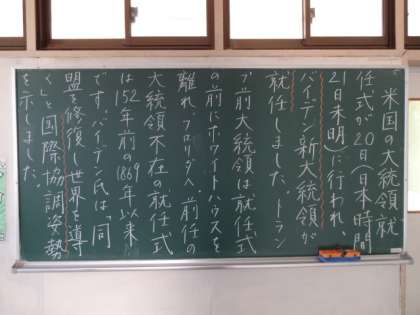 米国の大統領就
任式が20日(日本時間
21日未明)に行われ、
バイデン新大統領が
就任しました。トラン
プ前大統領は就任式
の前にホワイトハウスを
離れ、フロリダへ。前任の
大統領不在の就任式
は152年前の1869年以来
です。バイデン氏は「同
盟を修復し世界を導
く」と国際協調姿勢
を示しました。